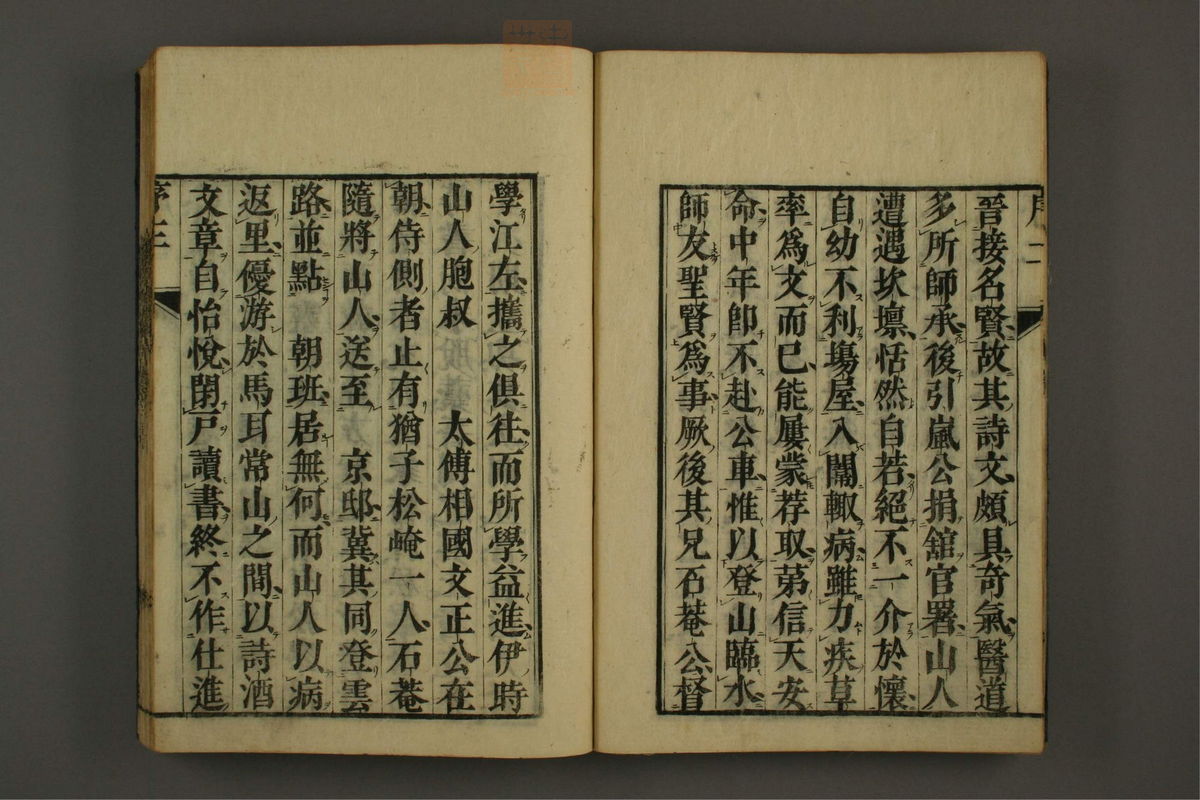 序二
晉接名賢故其詩文頗具奇氣醫道
多所師承後引嵐公捐舘官署山人
遭遇坎壈恬然自若絕不一介於懷
自幼不利塲屋入闈輙病雖力疾草
率爲文而已能屢蒙荐取苐信天安
命中年卽不赴公車惟以登山臨水
師友聖賢爲事厥後其兄石菴公督
學江左攜之俱往而所學益進伊時
山人胞叔 太傅相國文正公在
朝侍側者止有猶子松崦一人石菴
隨將山人送至 京邸冀其同登雲
路並點 朝班居無何而山人以病
返里優游於馬耳常山之間以詩酒
文章自怡悅閉戸讀書終不作仕進
序三